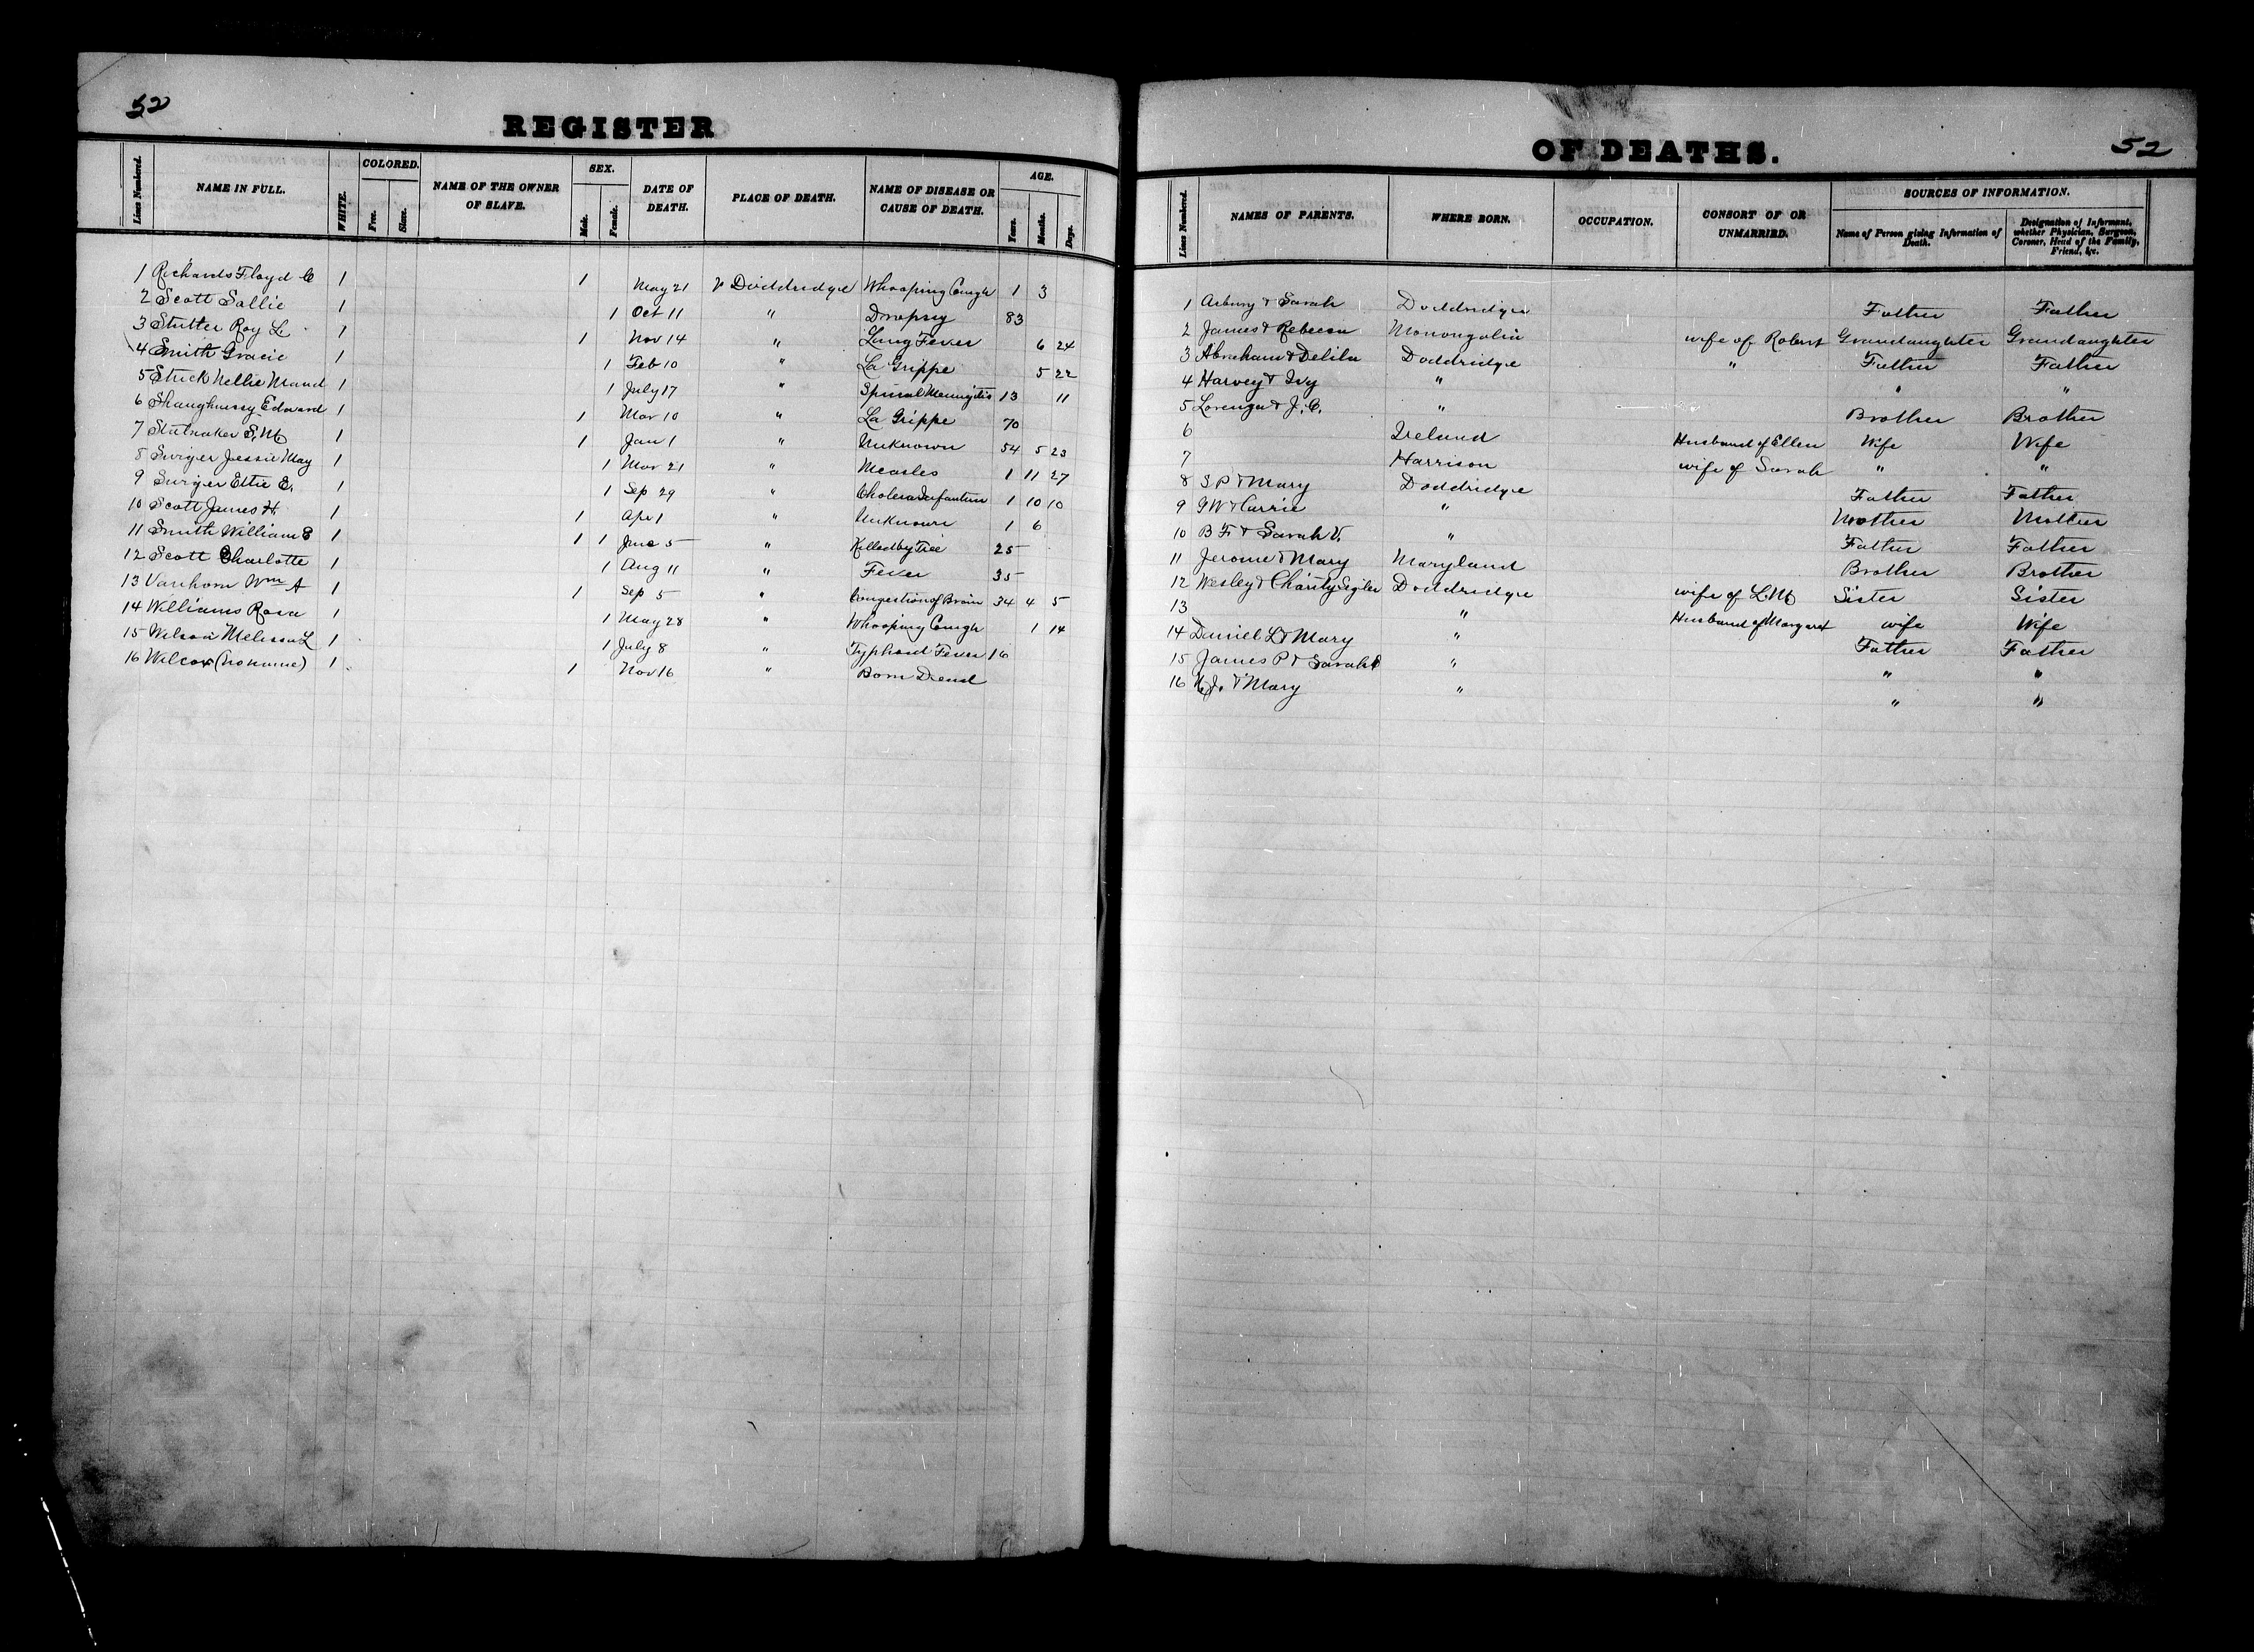 52
REGISTER
Lines Numbered. NAME IN FULL. WHITE. COLORED. Free. Slave. NAME OF THE OWNER OF SLAVE. SEX. Male. Female. DATE OF DEATH. PLACE OF DEATH. NAME OF DISEASE OR CAUSE OF DEATH. AGE. Years. Months. Days.
1 Richards Floyd C 1 1 May 21 Doddridge Whooping Cough 1 3
2 Scott Sallie 1 1 Oct 11 " Dropsy 83
3 Stutler Roy L. 1 1 Nov 14 " Lung Fever 6 24
4 Smith Gracie 1 1 Feb 10 " La Grippe 5 22
5 Stuck Nellie Maud 1 1 July 17 " Spinal Meningitis 13 11
6 Shaughnessy Edward 1 1 Mar 10 " La Grippe 70
7 Stutnaker S. M 1 1 Jan 1 " Unknown 54 5 23
8 Swiger Jessie May 1 1 Mar 21 " Measles 1 11 27
9 Swiger Ettie E. 1 1 Sep 29 " Cholera Infantum 1 10 10
10 Scott James H. 1 1 Apr 1 " Unknown 1 6
11 Smith William E 1 1 1 June 5 " Killed by Tree 25
12 Scott Charlotte 1 1 Aug 11 " Fever 35
13 Vanhorn Wm A 1 1 Sep 5 " Congestion of Brain 34 4 5
14 Williams Rosa 1 1 May 28 " Whooping Cough 1 14
15 Wilson Melissa L 1 1 July 8 " Typhoid Fever 16
16 Wilcox (no name) 1 1 Nov 16 " Born Dead
OF DEATHS.
52
Lines Numbered. NAMES OF PARENTS. WHERE BORN. OCCUPATION. CONSORT OF OR UNMARRIED. SOURCES OF INFORMATION. Name of Person giving Information of Death. Designation of Informant, whether Physician, Surgeon, Coroner, Head of the Family, Friend, &c.
1 Asbury & Sarah Doddridge Father Father
2 James & Rebecca Monongalia wife of Robert Grandaughter Grandaughter
3 Abraham & Delila Doddridge " Father Father
4 Harvey & Ivy " " "
5 Lorenza & J. C. " Brother Brother
6 Ireland Husband of Ellen Wife Wife
7 Harrison wife of Sarah " "
8 S P & Mary Doddridge Father Father
9 G W & Carrie " Mother Mother
10 B F. & Sarah V. " Father Father
11 Jerome & Mary Maryland Brother Brother
12 Wesley & Charity Sigler Doddridge wife of L. M Sister Sister
13 " Husband of Margaret wife Wife
14 Daniel L & Mary " Father Father
15 James P & Sarah " " "
16 & Mary " " "